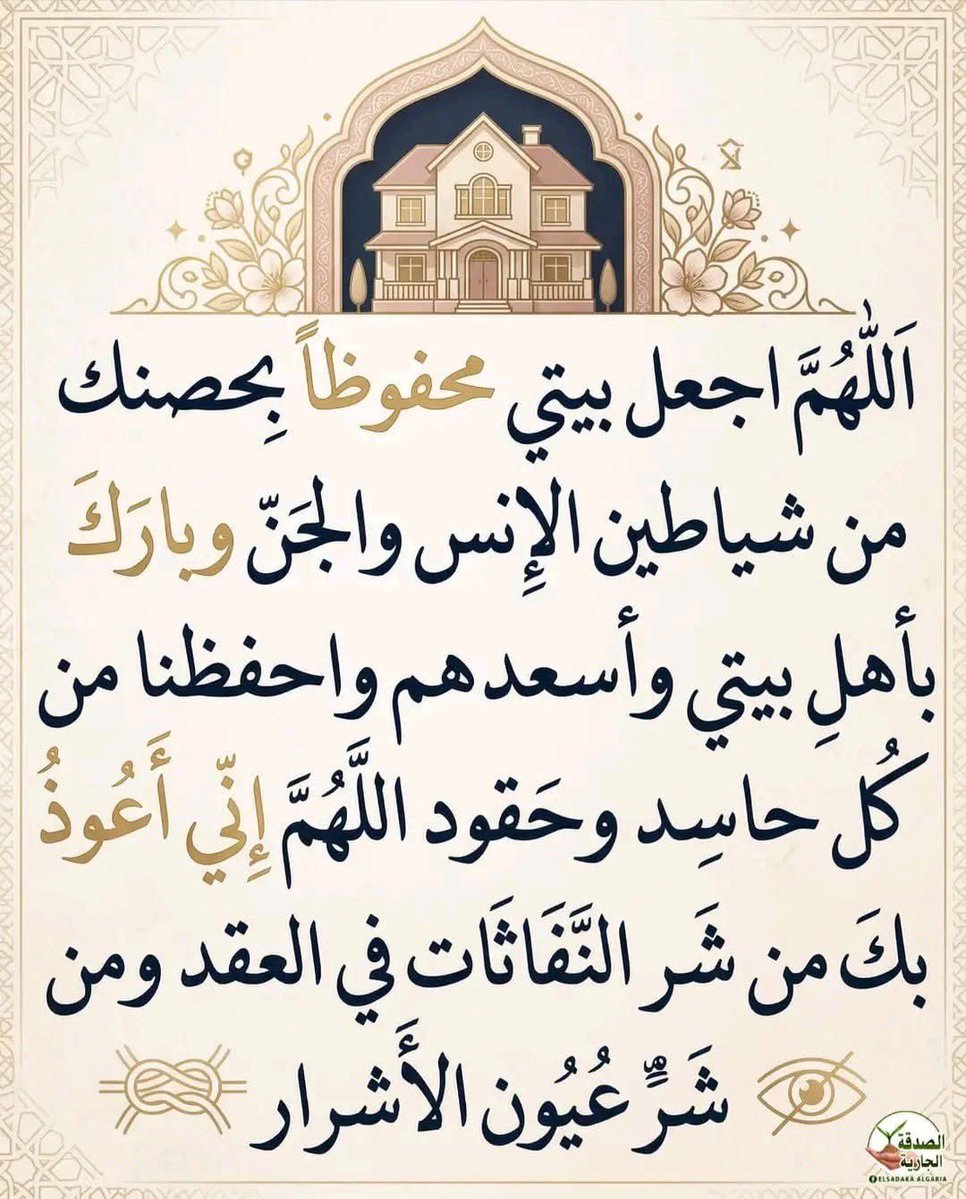 اَللّٰهُمَّ اجعل بيتي محفوظاً بِحصنك
من شياطين الإِنس والجَنّ وبارَكَ
بأهلِ بيتي وأسعدهم واحفظنا من
كُل حاسِد وحَقود اللَّهُمَّ إِنّي أَعُوذُ
بكَ من شَر النَّفَاثَات في العقد ومن
شَرِّ عُيُون الأَشرار
الصدقة
الجارية
ELSADAKA ALGARIA